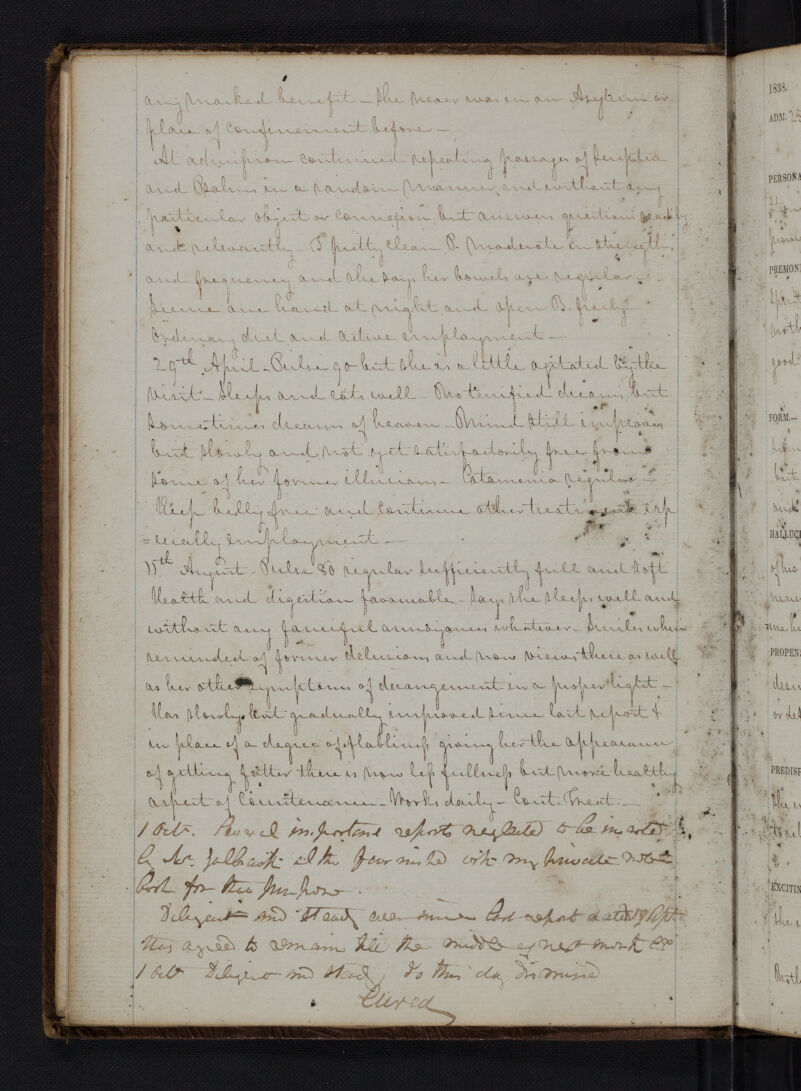 any marked benefit – She never was in an Asylum or
place of confinement before –
At admission continued repeating passages of Scripture
and Psalms in a random manner and without any
particular object or connexion, but answers questions readily
and relevantly – T. pretty clean P. moderate in strength
and frequency and she says her bowels are regular.
one hand at night and open B. freely
Ordinary diet and active employment –
29th April – Pulse 90 but she is a little agitated by the
visit – Sleeps and eats well – No terrified dreams, but
sometimes dreams of heaven – Mind still improves
but slowly and not yet satisfactorily free from
some of her former illusions – Catamenia regular –
Keep belly free and continue other treatment esp
=ecially employment –
15th August – Pulse 80 regular sufficiently full and soft
Health and digestion favourable – Says she sleeps well and
without any fanciful annoyances whatever – Smiles when
reminded of former delusions and now views these as well
as her other symptoms of derangement in a proper light –
Has slowly but gradually improved since last report &
in place of a degree of flabbiness giving her the appearance
of getting fatter there is now less fullness but more healthy
aspect of Countenance – Works daily – Cont. Treat. –
1 Octr. Several important reports neglected to be inserted
by Mr. furnished with my private note
Book for this purpose.
Diligent and Steady ever since last report dated 19 Sept
Has agreed to remain till the middle of next month &c
1 Octr Diligent and Steady, Is this day dismissed
Cured
1838.
ADM.
PERSONA
PREMONI
good
FORM.–
but
and
HALLUCI
of his
PROPEN
or del
PREDISP
EXCITIN